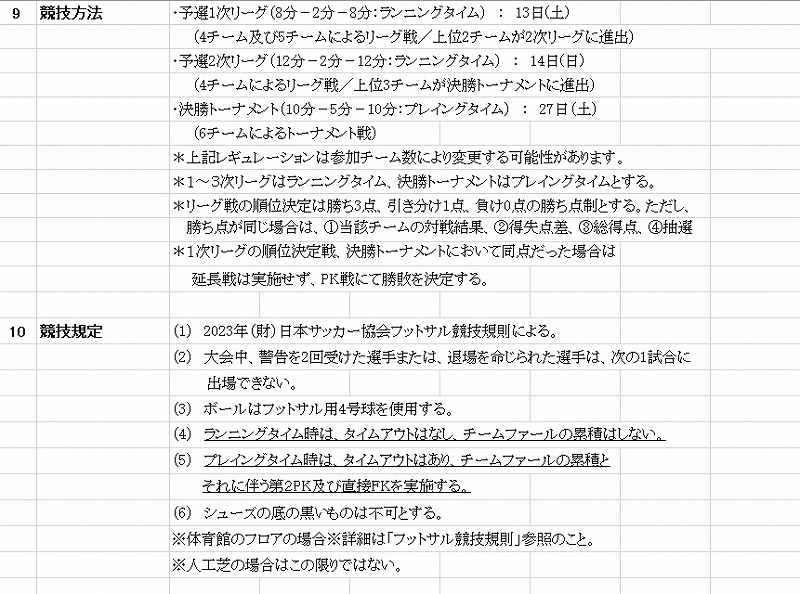 9 競技方法 ・予選1次リーグ(8分－2分－8分：ランニングタイム) ： 13日(土)
(4チーム及び5チームによるリーグ戦／上位2チームが2次リーグに進出)
・予選2次リーグ(12分－2分－12分：ランニングタイム) ： 14日(日)
(4チームによるリーグ戦／上位3チームが決勝トーナメントに進出)
・決勝トーナメント(10分－5分－10分：プレイングタイム) ： 27日(土)
(6チームによるトーナメント戦)
＊上記レギュレーションは参加チーム数により変更する可能性があります。
＊1～3次リーグはランニングタイム、決勝トーナメントはプレイングタイムとする。
＊リーグ戦の順位決定は勝ち3点、引き分け1点、負け0点の勝ち点制とする。ただし、
勝ち点が同じ場合は、①当該チームの対戦結果、②得失点差、③総得点、④抽選
＊1次リーグの順位決定戦、決勝トーナメントにおいて同点だった場合は
延長戦は実施せず、PK戦にて勝敗を決定する。
10 競技規定 (1) 2023年(財)日本サッカー協会フットサル競技規則による。
(2) 大会中、警告を2回受けた選手または、退場を命じられた選手は、次の1試合に
出場できない。
(3) ボールはフットサル用4号球を使用する。
(4) ランニングタイム時は、タイムアウトはなし、チームファールの累積はしない。
(5) プレイングタイム時は、タイムアウトはあり、チームファールの累積と
それに伴う第2PK及び直接FKを実施する。
(6) シューズの底の黒いものは不可とする。
※体育館のフロアの場合※詳細は「フットサル競技規則」参照のこと。
※人工芝の場合はこの限りではない。